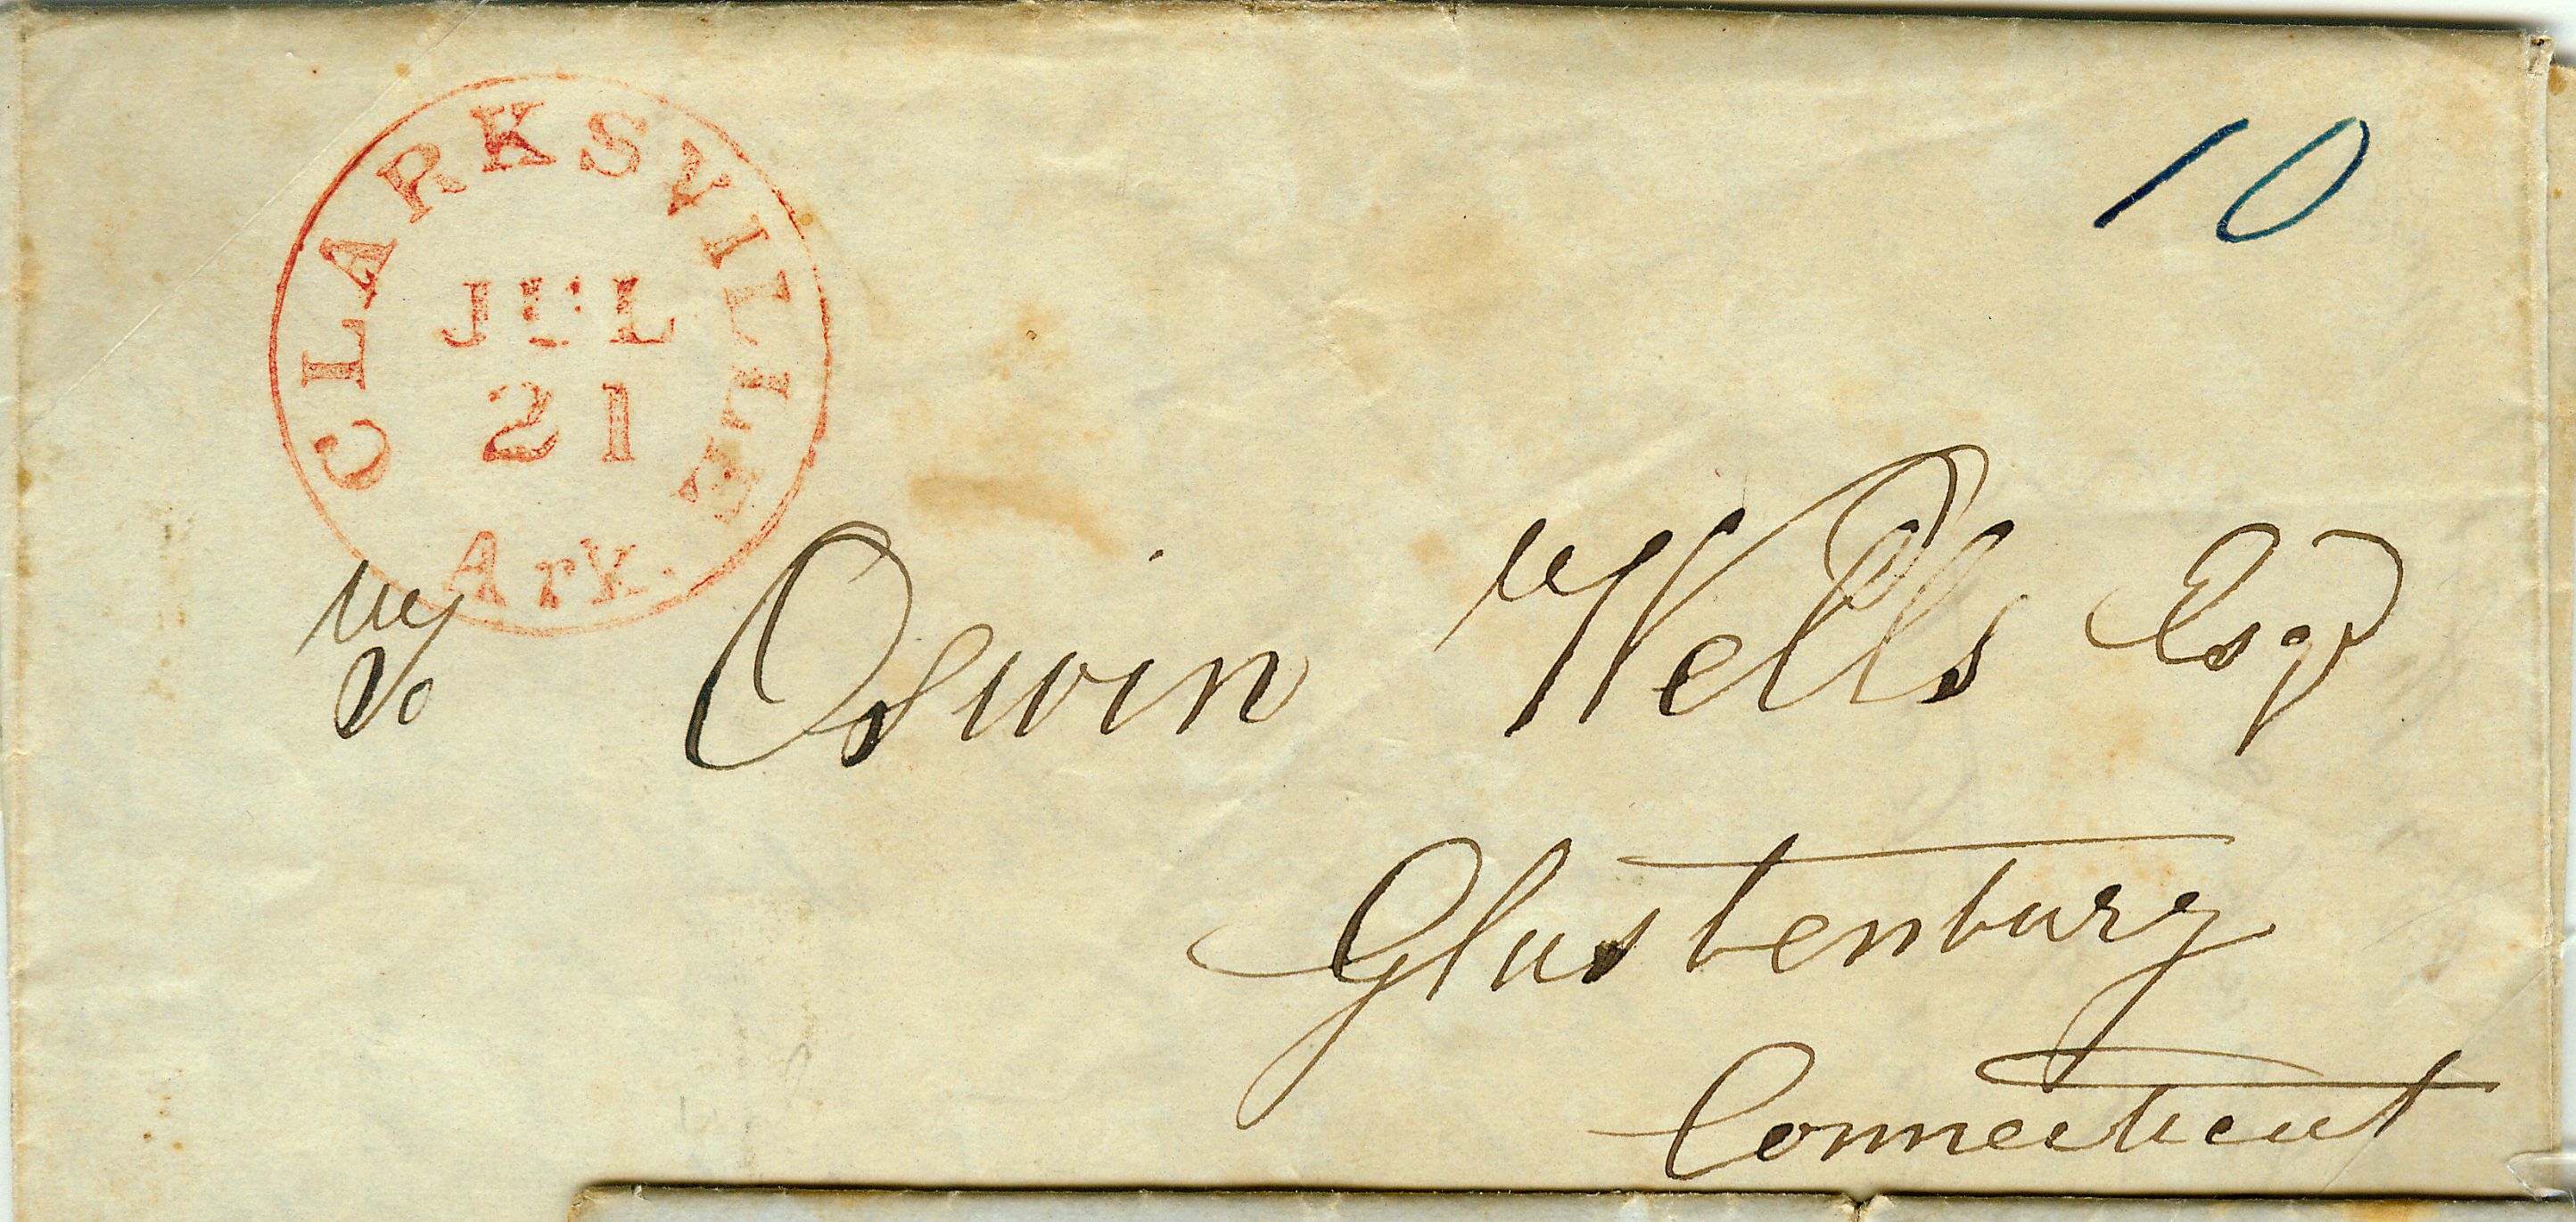 CLARKSVILLE
JUL
21
Ark.
10
Oswin Wells Esq
Glastenbury
Connecticut